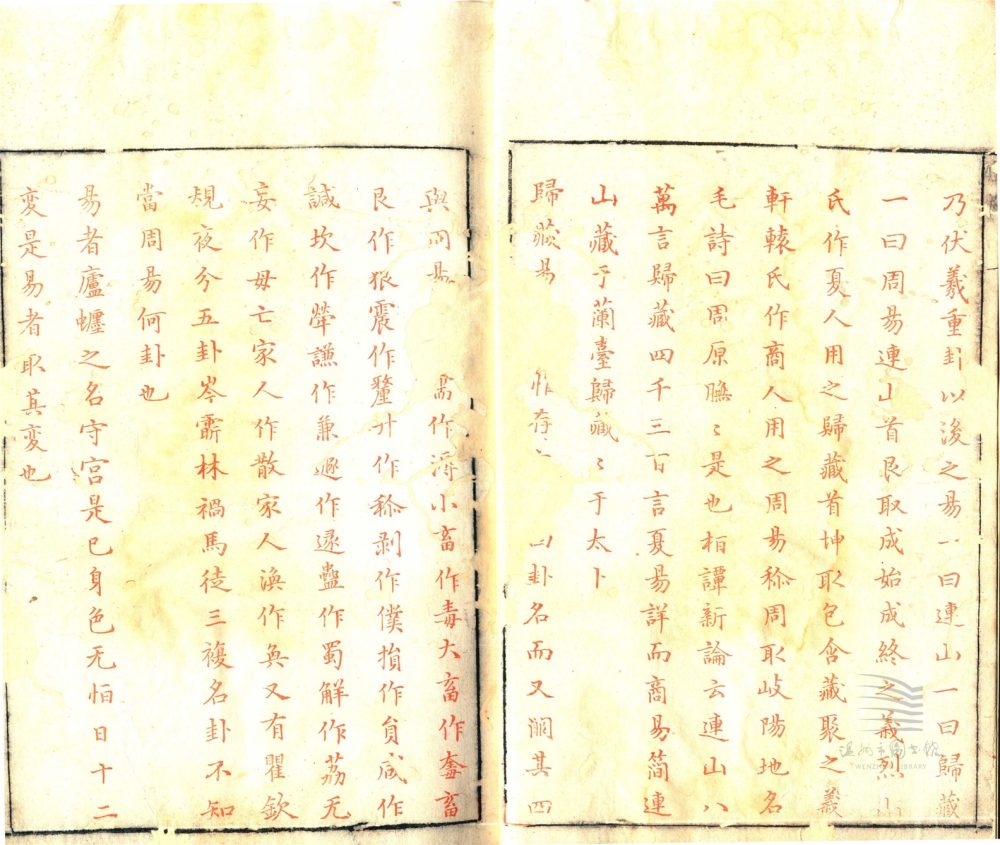 乃伏羲重卦以後之易一曰連山一曰歸藏
一曰周易連山首艮取成始成終之義烈山
氏作夏人用之歸藏首坤取包含藏聚之義
軒轅氏作商人用之周易稱周取岐陽地名
毛詩曰周原膴〻是也桓譚新論云連山八
萬言歸藏四千三百言夏易詳而商易簡連
山藏于蘭臺歸藏〻于太卜
歸藏易 惟存 四卦名而又闕其四
與周易 需作溽小畜作毒大畜作奮畜
艮作狠震作釐升作稱剥作僕損作員咸作
諴坎作犖謙作兼遯作逯蠱作蜀解作荔无
妄作毋亡家人作散家人渙作奐又有瞿欽
規夜分五卦岑霨林禍馬徒三複名卦不知
當周易何卦也
易者廬蠦之名守宮是已身色无恒日十二
変是易者取其変也
温州市圖書館
WENZHOU LIBRARY